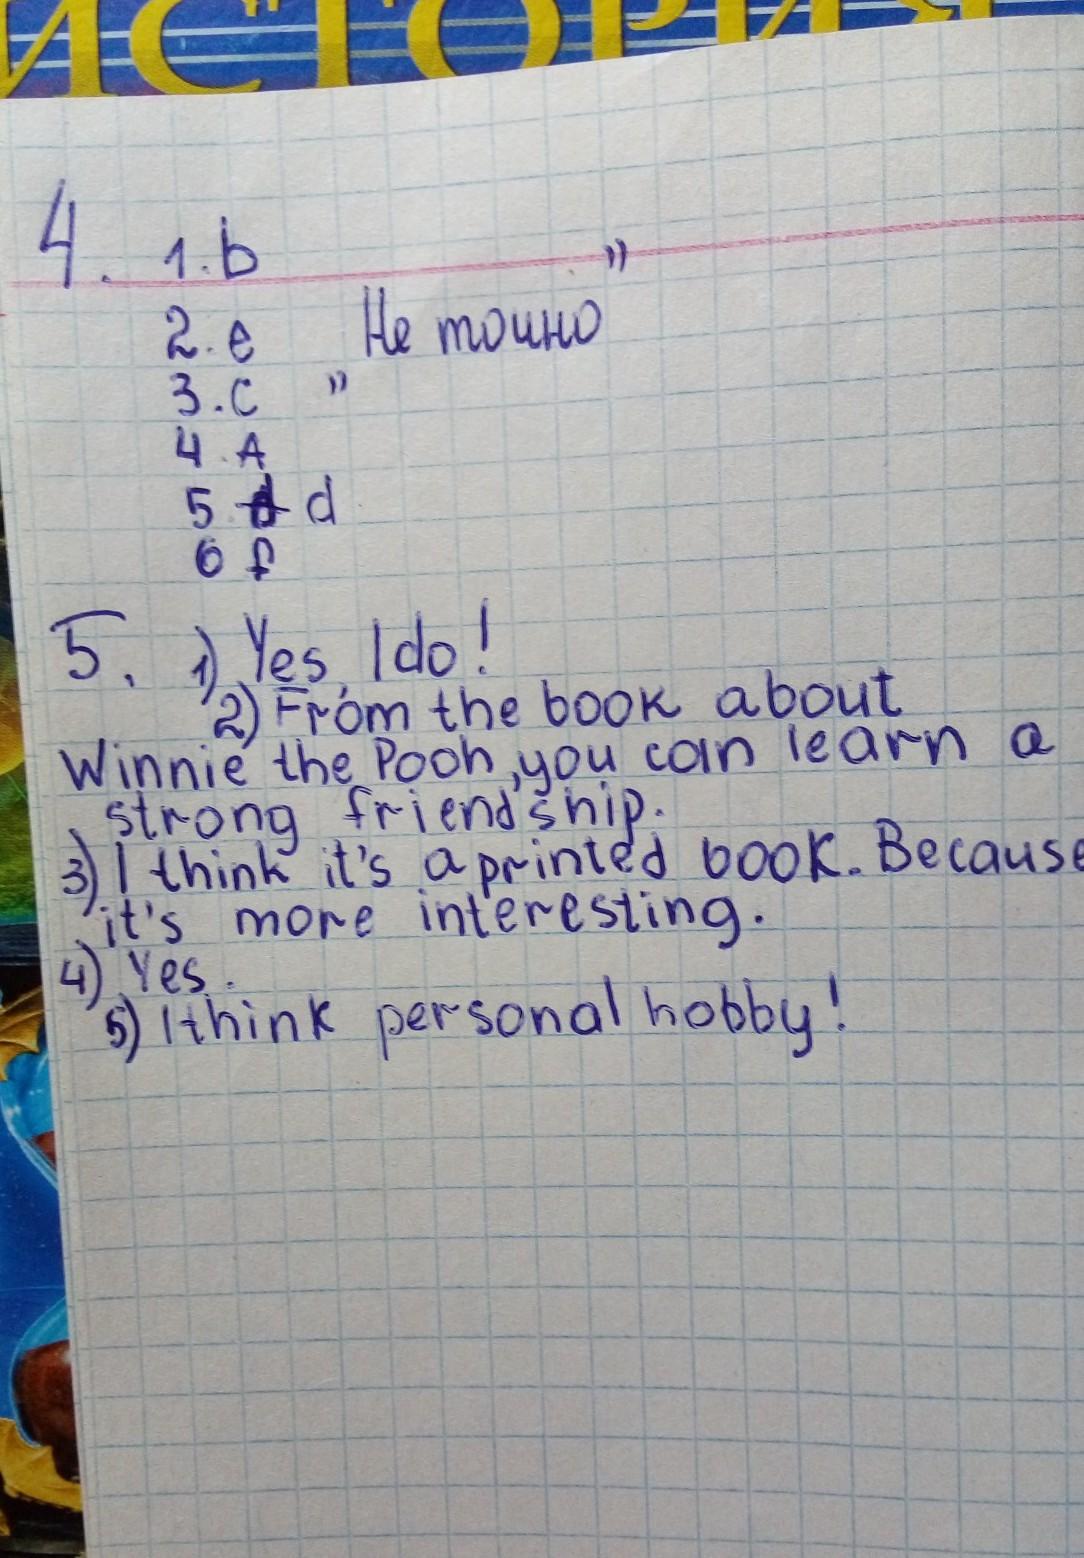 ИСТОРИЯ
4. 1. b
"
2. e Не точно
3. c "
4. A
5. d d
6 f
5. 1) Yes, I do!
2) From the book about
Winnie the Pooh, you can learn a
strong friendship.
3) I think it's a printed book. Because
it's more interesting.
4) Yes.
5) I think personal hobby!